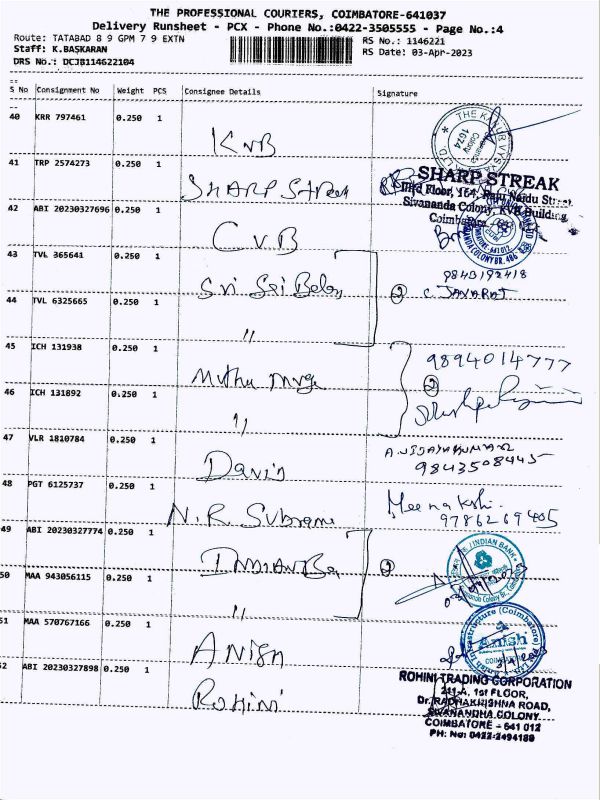 THE PROFESSIONAL COURIERS, COIMBATORE-641037
Delivery Runsheet - PCX - Phone No.:0422-3505555 - Page No.:4
Route: TATABAD 8 9 GPM 7 9 EXTN
RS No.: 1146221
Staff: K.BASKARAN
RS Date: 03-Apr-2023
DRS No.: DCJB114622104
S No Consignment No Weight PCS Consignee Details Signature
40 KRR 797461 0.250 1 KVB
41 TRP 2574273 0.250 1 SHARP Streak
SHARP STREAK
Sivananda Colony, KVB Building,
Coimbatore
42 ABI 20230327696 0.250 1 C.V.B
43 TVL 365641 0.250 1 Sri Sai
9843192418
2 C. JAYARAJ
44 TVL 6325665 0.250 1 "
45 ICH 131938 0.250 1 Muthu
9894014777
2
46 ICH 131892 0.250 1 "
47 VLR 1810784 0.250 1
A. VIJAYAKUMAR
9843508445
48 PGT 6125737 0.250 1 N.R. Subrami
Meenakshi.
9786269405
49 ABI 20230327774 0.250 1 INDIAN
2
INDIAN BANK
50 MAA 943056115 0.250 1 "
51 MAA 570767166 0.250 1 ANISH
Anish
52 ABI 20230327898 0.250 1 ROHINI
ROHINI TRADING CORPORATION
211-A, 1st FLOOR,
Dr. RADHAKRISHNA ROAD,
SIVANANDHA COLONY,
COIMBATORE - 641 012
PH: No: 0422-2494180